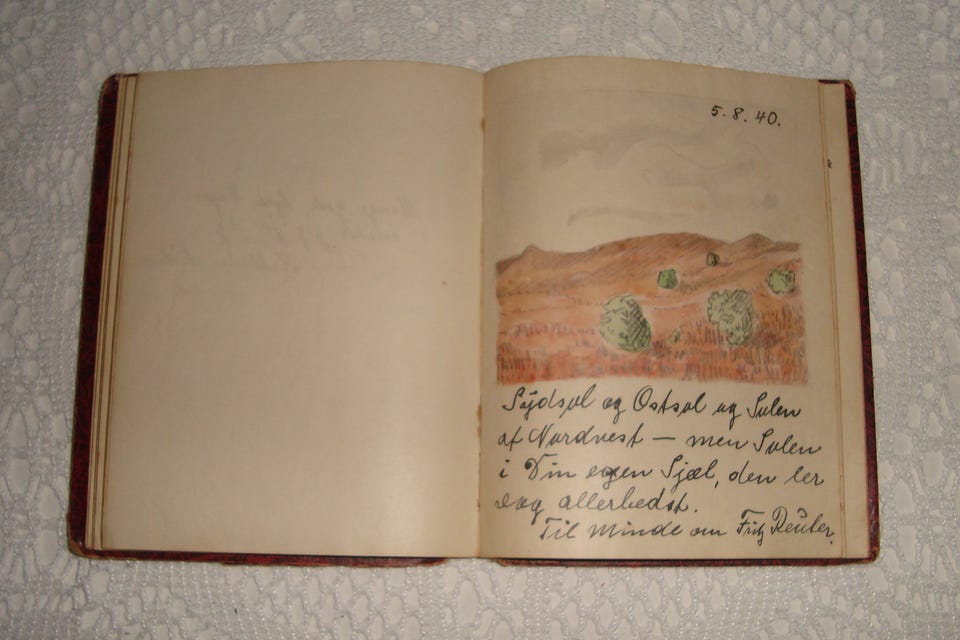 5.8.40.
Sydsol og Ostsol og Solen
af Nordvest — men Solen
i Din egen Sjæl, den ler
dog allerbedst.
Til Minde om Fritz Reuter.